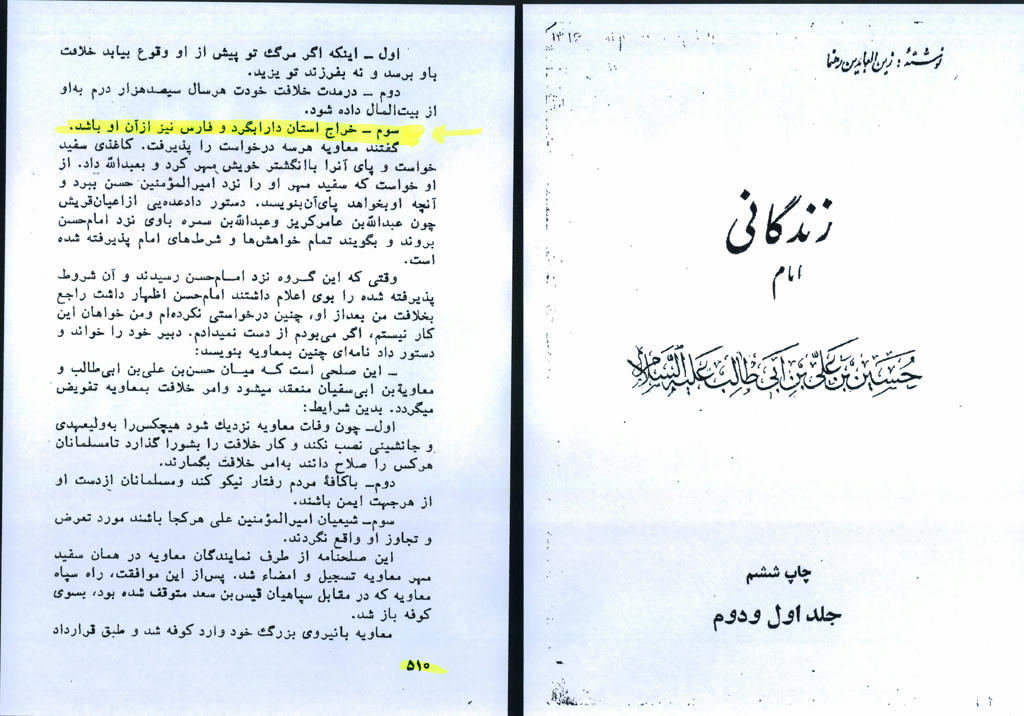 اول ــ اینکه اگر مرگ تو پیش از او وقوع بیابد خلافت
باو برسد و نه بفرزند تو یزید.
دوم ــ درمدت خلافت خودت هرسال سیصدهزار درم به‌او
از بیت‌المال داده شود.
سوم ــ خراج استان دارابگرد و فارس نیز ازآن او باشد.
گفتند معاویه هرسه درخواست را پذیرفت. کاغذی سفید
خواست و پای آنرا باانگشتر خویش مهر کرد و بعبدالله داد. از
او خواست که سفید مهر او را نزد امیرالمؤمنین حسن ببرد و
آنچه اوبخواهد پای‌آن‌بنویسد. دستور دادعده‌یی ازاعیان‌قریش
چون عبدالله‌بن عامرکریز وعبدالله‌بن سمره باوی نزد امام‌حسن
بروند و بگویند تمام خواهش‌ها و شرط‌های امام پذیرفته شده
است.
وقتی که این گــروه نزد امــام‌حسن رسیدند و آن شروط
پذیرفته شده را بوی اعلام داشتند امام‌حسن اظهار داشت راجع
بخلافت من بعداز او، چنین درخواستی نکرده‌ام ومن خواهان این
کار نیستم، اگر می‌بودم از دست نمیدادم. دبیر خود را خواند و
دستور داد نامه‌ای چنین بمعاویه بنویسد:
ــ این صلحی است کــه میــان حسن‌بن علی‌بن ابی‌طالب و
معاویة‌بن ابی‌سفیان منعقد میشود وامر خلافت بمعاویه تفویض
میگردد. بدین شرایط:
اول‌ــ چون وفات معاویه نزدیك شود هیچکس‌را به‌ولیعهدی
و جانشینی نصب نکند و کار خلافت را بشورا گذارد تامسلمانان
هرکس را صلاح دانند به‌امر خلافت بگمارند.
دوم‌ــ باکافهٔ مردم رفتار نیکو کند ومسلمانان ازدست او
از هرجهت ایمن باشند.
سوم‌ــ شیعیان امیرالمؤمنین علی هرکجا باشند مورد تعرض
و تجاوز او واقع نگردند.
این صلحنامه از طرف نمایندگان معاویه در همان سفید
مهر معاویه تسجیل و امضاء شد. پس‌از این موافقت، راه سپاه
معاویه که در مقابل سپاهیان قیس‌بن سعد متوقف شده بود، بسوی
کوفه باز شد.
معاویه بانیروی بزرگ خود وارد کوفه شد و طبق قرارداد
۵۱۰
نوشتهٔ : زین العابدین رهنما
زندگانی
امام
حسین بن علی بن ابی طالب علیه السلام
چاپ ششم
جلد اول و دوم